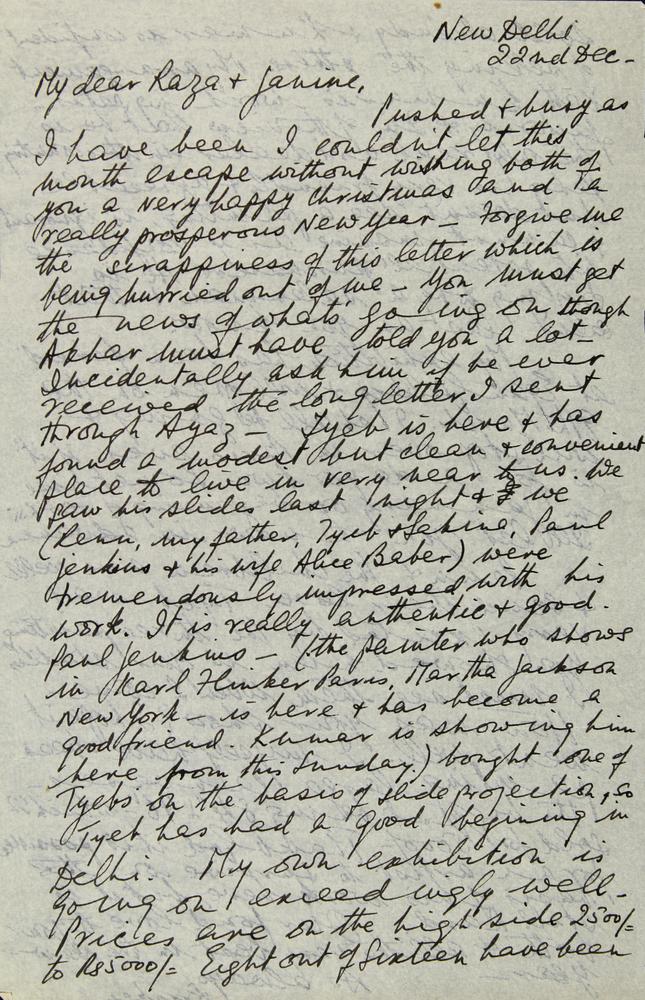 New Delhi
22nd Dec-
My dear Raza & Janine,
Pushed & busy as
I have been I couldn't let this
month escape without wishing both of
you a very happy Christmas and a
really prosperous New Year - Forgive me
the scrappiness of this letter which is
being hurried out of me - You must get
the news of whats going on though
Akbar must have told you a lot -
Incidentally ask him if he ever
received the long letter I sent
through Ayaz - Tyeb is here & has
found a modest but clean & convenient
place to live in very near to us. We
saw his slides last night & we
(Renu, my father, Tyeb & Sakina, Paul
Jenkins & his wife Alice Baber) were
tremendously impressed with his
work. It is really authentic & good.
Paul Jenkins - (the painter who shows
in Karl Flinker Paris, Martha Jackson
New York - is here & has become a
good friend. Kumar is showing him
here from this Sunday.) bought one of
Tyebs on the basis of slide projection, so
Tyeb has had a good begining in
Delhi. My own exhibition is
going on exceedingly well -
Prices are on the high side 2500/=
to Rs5000/= Eight out of Sixteen have been